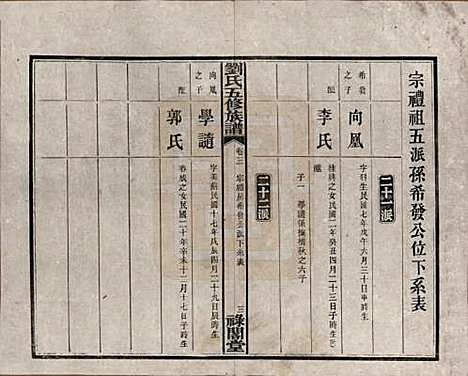 宗禮祖五派孫希發公位下系表
二十一派
希發之子
向鳳
字羽生民國七年戊午六月三十日申時生
配
李氏
桂興之女民國二年癸丑四月二十三日子時生
繼
子一 學隨係撫橘秋之六子
二十二派
劉氏五修族譜
卷三
宗禮房希發公派下系表
三
祿閣堂
向鳳之子
學隨
字美餘民國十七年戊辰四月二十九日辰時生
配
郭氏
春成之女民國二十年辛未十二月十七日子時生